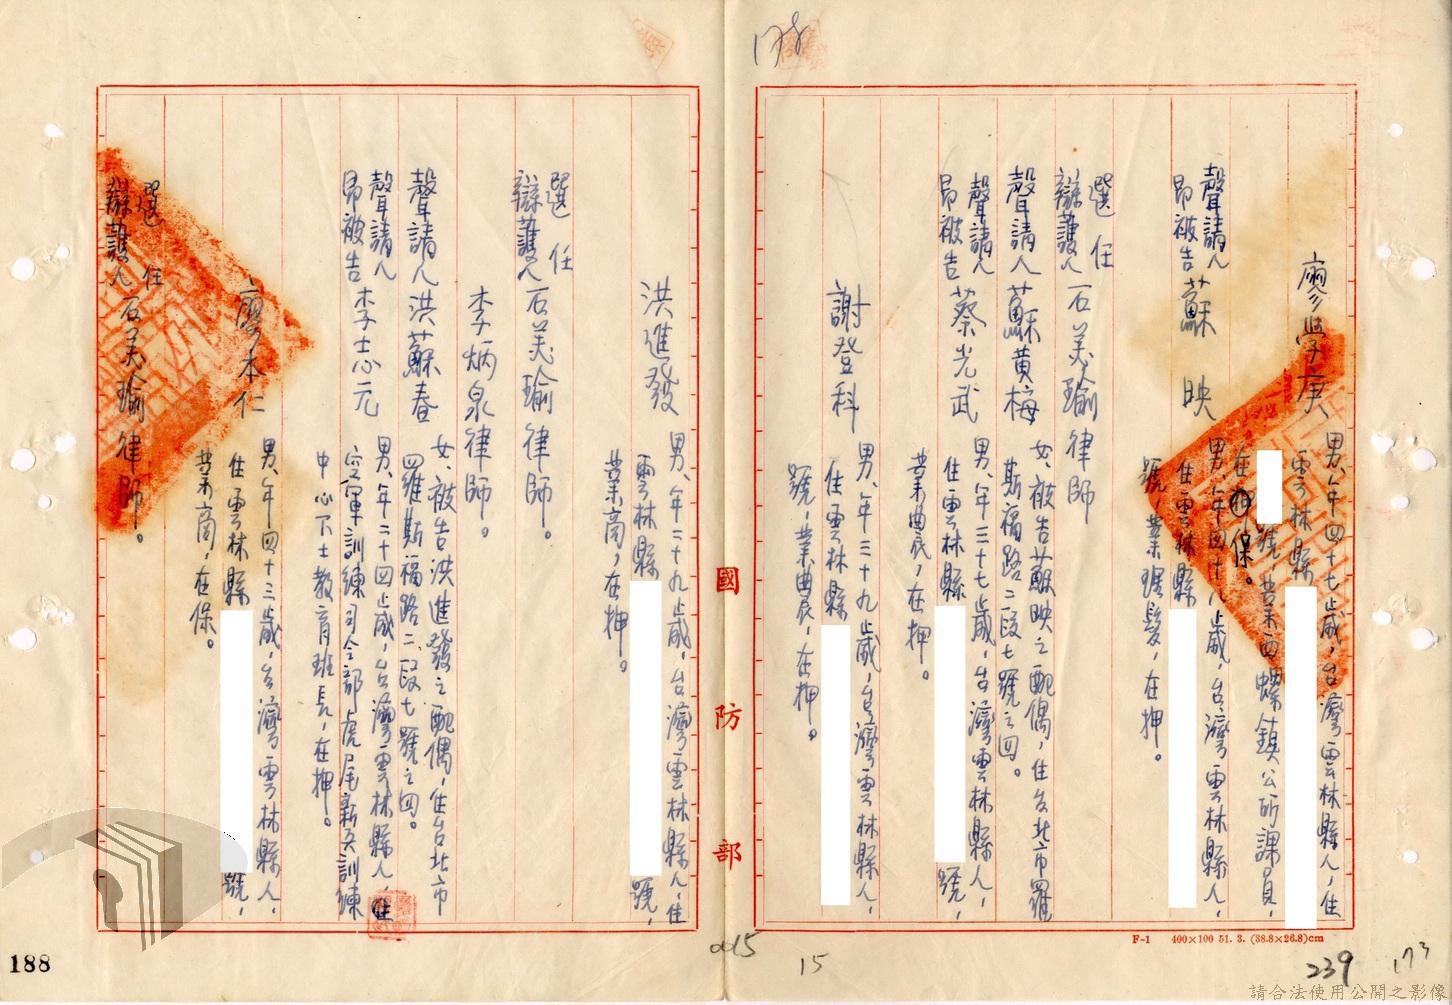 廖學庚
男、年四十七歲，台灣雲林縣人，住
雲林縣
號，業西螺鎮公所課員，
在保。
聲請人
即被告
蘇映
男、年四十八歲，台灣雲林縣人，
住雲林縣
號，業理髮，在押。
選任
辯護人
石美瑜律師
聲請人蘇黃梅
女、被告蘇映之配偶，住台北市羅
斯福路二段七號之四。
聲請人
即被告
蔡光武
男、年三十七歲，台灣雲林縣人，
住雲林縣
號，
業農，在押。
謝登科
男、年三十九歲，台灣雲林縣人，
住雲林縣
號，業農，在押。
國防部
洪進發
男、年二十九歲，台灣雲林縣人，住
雲林縣
號，
業商，在押。
選任
辯護人
石美瑜律師。
李炳泉律師。
聲請人洪蘇春
女、被告洪進發之配偶，住台北市
羅斯福路二段七號之四。
聲請人
即被告
李志元
男、年二十四歲，台灣雲林縣人，住
空軍訓練司令部虎尾新兵訓練
中心下士教育班長，在押。
廖本仁
男、年四十三歲，台灣雲林縣人，
住雲林縣
號，
業商，在保。
選任
辯護人
石美瑜律師。
178
F-1 400×100 51. 3. (38.8×26.8)cm
0015
15
239
173
188
請合法使用公開之影像